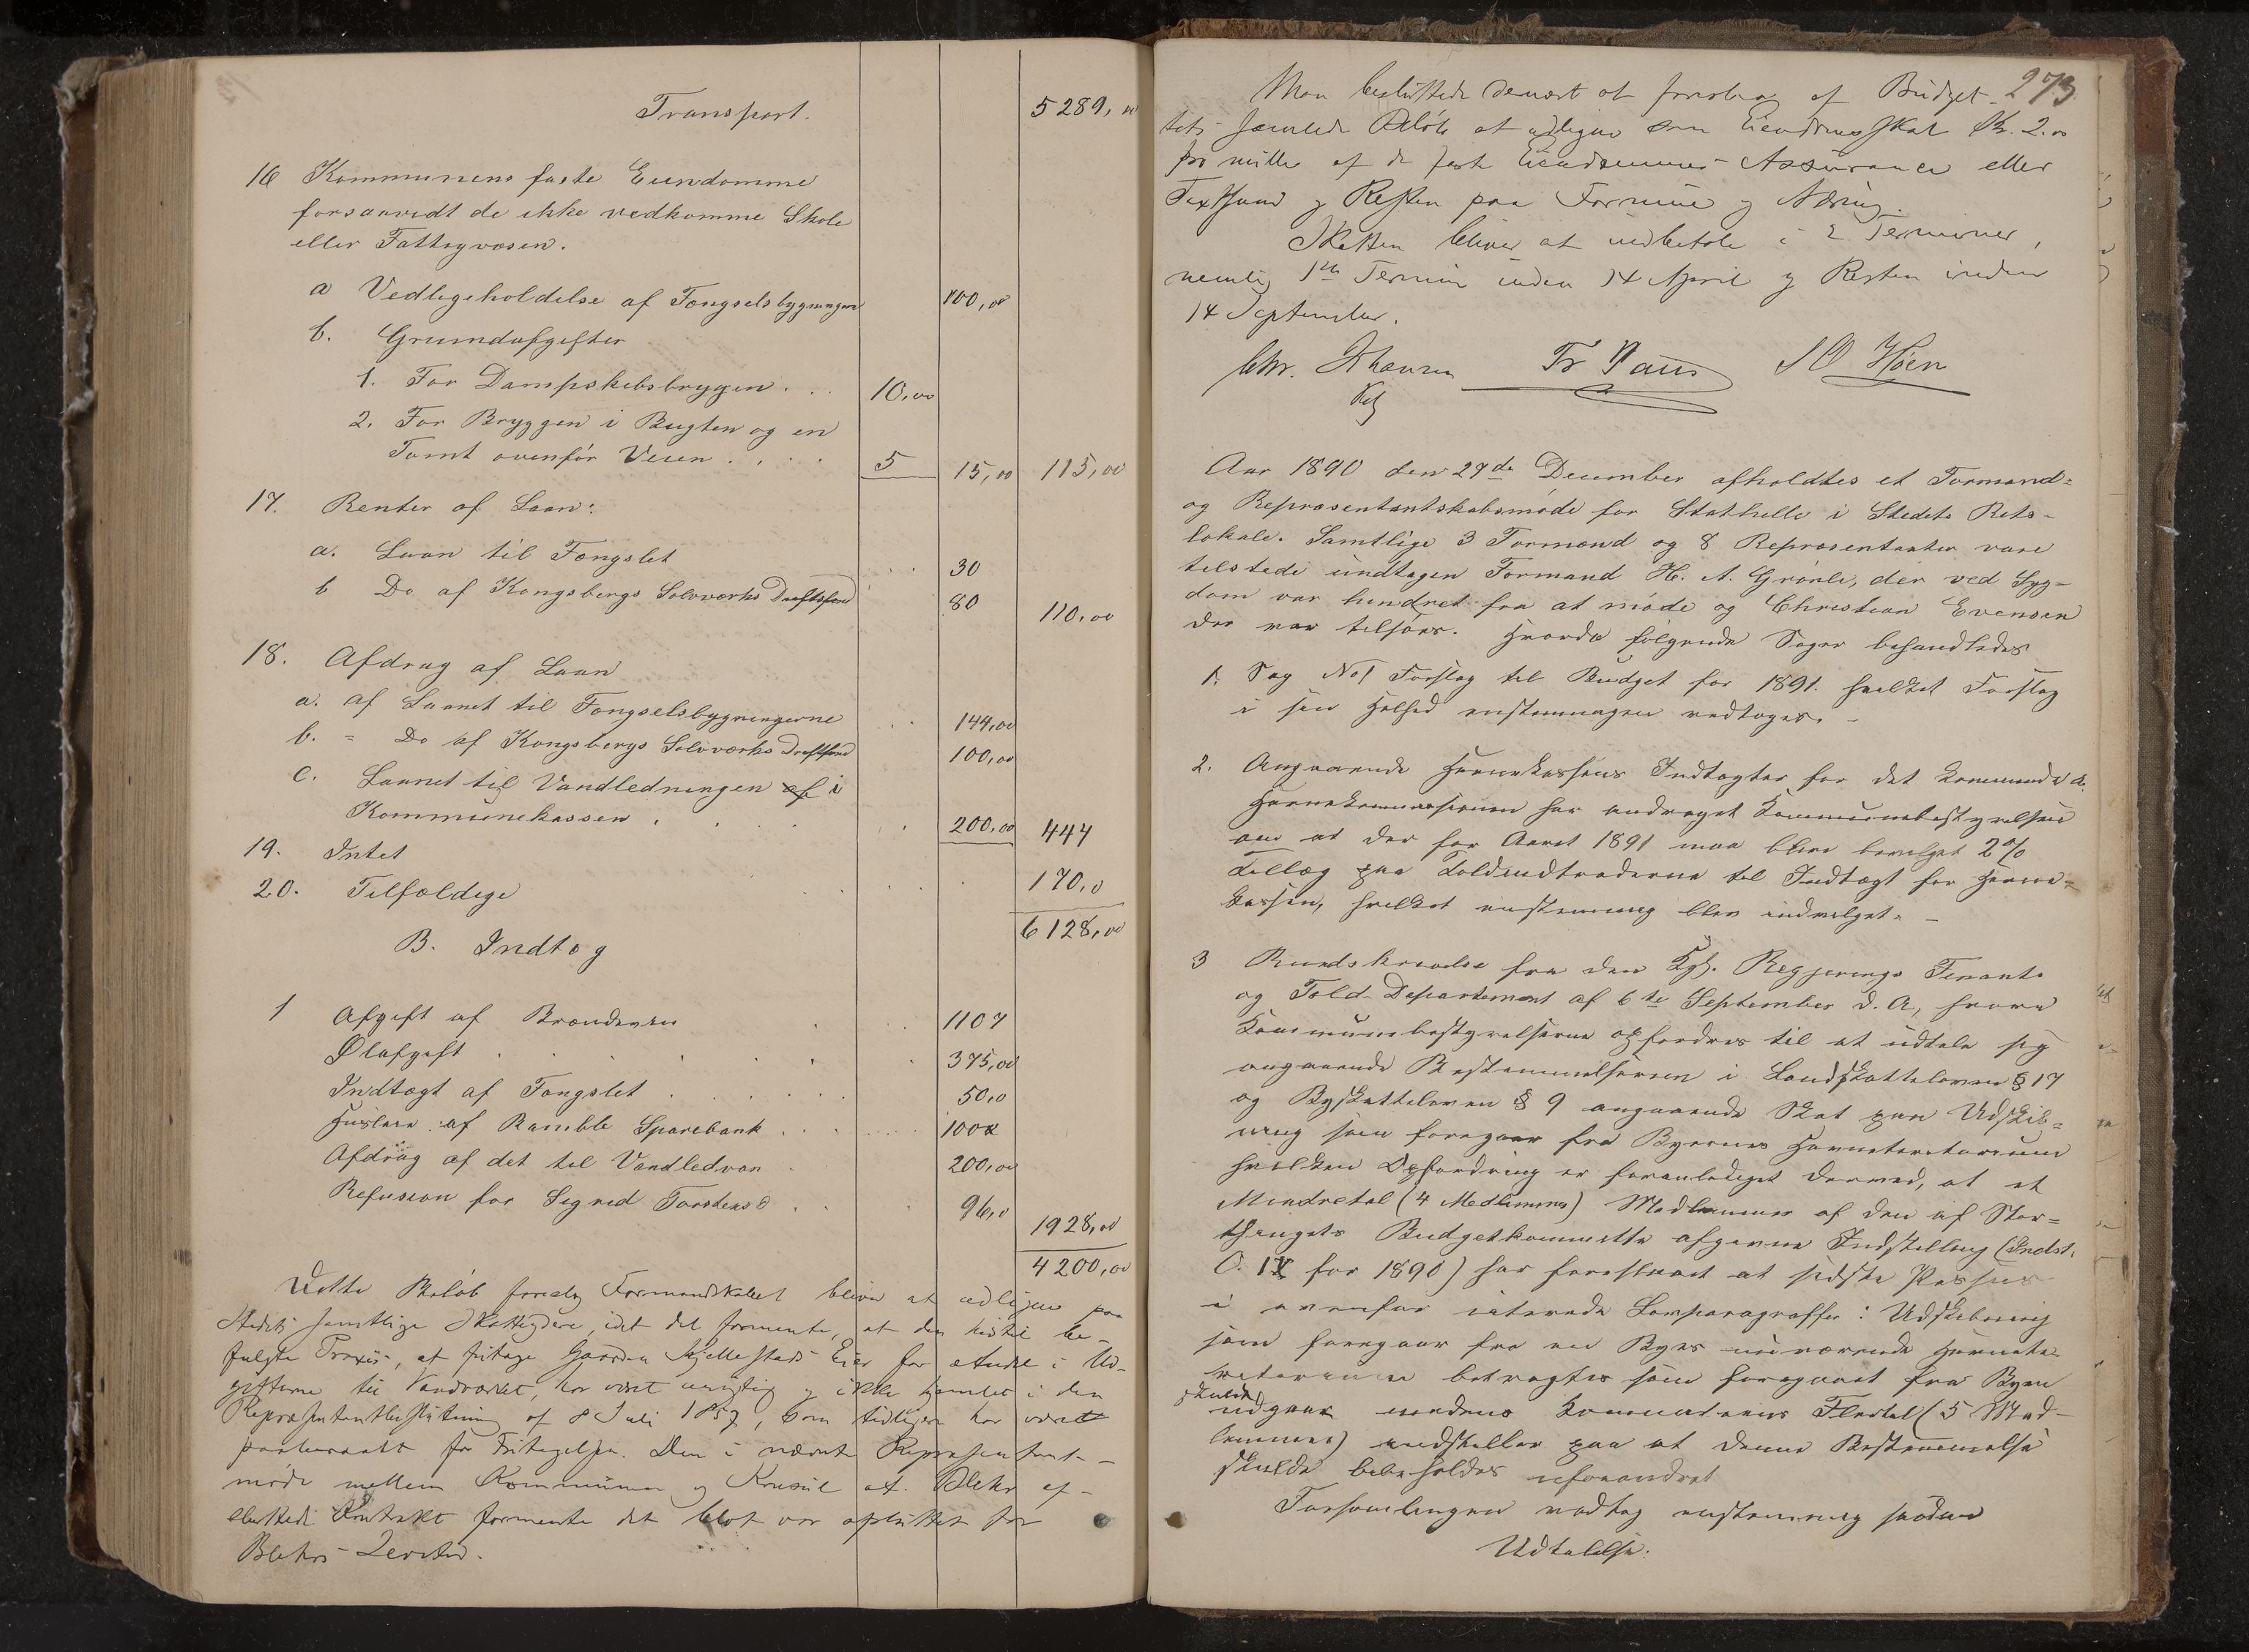 Transport. 5289,00
16 Kommunens faste Eiendomme
forsaavidt de ikke vedkomme Skole
eller Fattigvæsen.
a Vedligeholdelse af Fængselsbygningen 100,00
b. Grundafgifter
1. For Dampskibsbryggen . . . 10,00
2. For Bryggen i Bugten og en
Tomt ovenfor Veien . . . . 5 15,00 115,00
17. Renter af Laan:
a. Laan til Fængslet . . 30
b Do af Kongsbergs Sølvværks Driftsfond 80 110,00
18. Afdrag af Laan
a. af Laanet til Fængselsbygningerne . . 144,00
b. = Do af Kongsbergs Sølvværks Driftsfond 100,00
c. Laanet til Vandledningen af i
Kommunekassen . . . . 200,00 444
19. Intet
20. Tilfældige . . . . 170,0
6128,00
B. Indtæg
1 Afgift af Brændevin . . . 1107
Ølafgift . . . . . . 375,00
Indtægt af Fængslet . . . . . . 50,0
Husleie af Bamble Sparebank . . . . 100
Afdrag af det til Vandledvæn . 200,00
Refusion for Sigrid Torstensd . . . 96,0
1928,00
4200,00
Dette Beløb foreslog Formandskabet bliver at udligne paa
Stedets samtlige Skatteydere, idet det formente, at den hidtil be-
fulgte Praxis, at fritage Gaarden Kjellestads Eier for Andel i Ud-
gifterne til Vandværket, har været urigtig og ikke hjemlet i den
Repræsentantbeslutning af 8 Juli 1857, som tidligere har været
paaberaabt for Fritagelsen. Den i nævnte Repræsentant-
møde mellem Kommunen og Konsul Blehr af-
sluttede Kontrakt formente det blot var afsluttet for
Blehrs Levetid.
273
Man besluttede dernæst at foreslaa af Budget-
tets samlede Beløb at udligne som Eiendomsskat Kr. 2.00
pro mille af de faste Eiendommes Assurance eller
Taxtsum og Resten paa Formue og Næring.
Skatten bliver at indbetale i 2 Terminer,
nemlig 1ste Termin inden 14 April og Resten inden
14 September.
Chr. Johansen Fr Paus J O Høen
Aar 1890 den 29de December afholdtes et Formand=
og Repræsentantskabsmøde for Stathelle i Stedets Rets-
lokale. Samtlige 3 Formænd og 8 Repræsentanter vare
tilstede undtagen Formand H. A. Grønli, der ved Syg-
dom var hindret fra at møde og Christian Evensen
der var tilsjøs. Hvorda følgende Sager behandledes
1. Sag No 1 Forslag til Budget for 1891. hvilket Forslag
i sin Helhed enstemmigen vedtoges. –
2. Angaaende Havnekassens Indtægter for det kommende A.
Havnekommissionen har andraget Kommunebestyrelsen
om at der for Aaret 1891 maa blive bevilget 2%
Tillæg paa Toldindtraderne til Indtægt for Havne=
kassen, hvilket enstemmig blev indvilget. –
3 Rundskrivelse fra den Kgl. Regjerings Finants
og Told-Departement af 6te September d. A, hvori
Kommunebestyrelserne opfordres til at udtale sig
angaaende Bestemmelserne i Landskatteloven § 17
og Byskatteloven § 9 angaaende Skat paa Udskib=
ning som foregaar fra Byernes Havneteritorium
hvilken Opfordring er foranlediget derved, at et
Mindretal (4 Medlemmer) Medlemmer af den af Stor=
thingets Budgetkomitte afgivne Indstilling (Indst.
O. IX for 1890) har foreslaaet at sidste Passus
i ovenfor citerede Lovparagraffer: Udskibning
som foregaar fra en Byes nuværende Havnete-
retorium betragtes som foregaaet fra Byen
skulde
udgaar medens Kommiteens Flertal (5 Med-
lemmer) indstiller paa at denne Bestemmelse
skulde bibeholdes uforandret
Forsamlingen vedtog enstemmig saadan
Udtalelse: